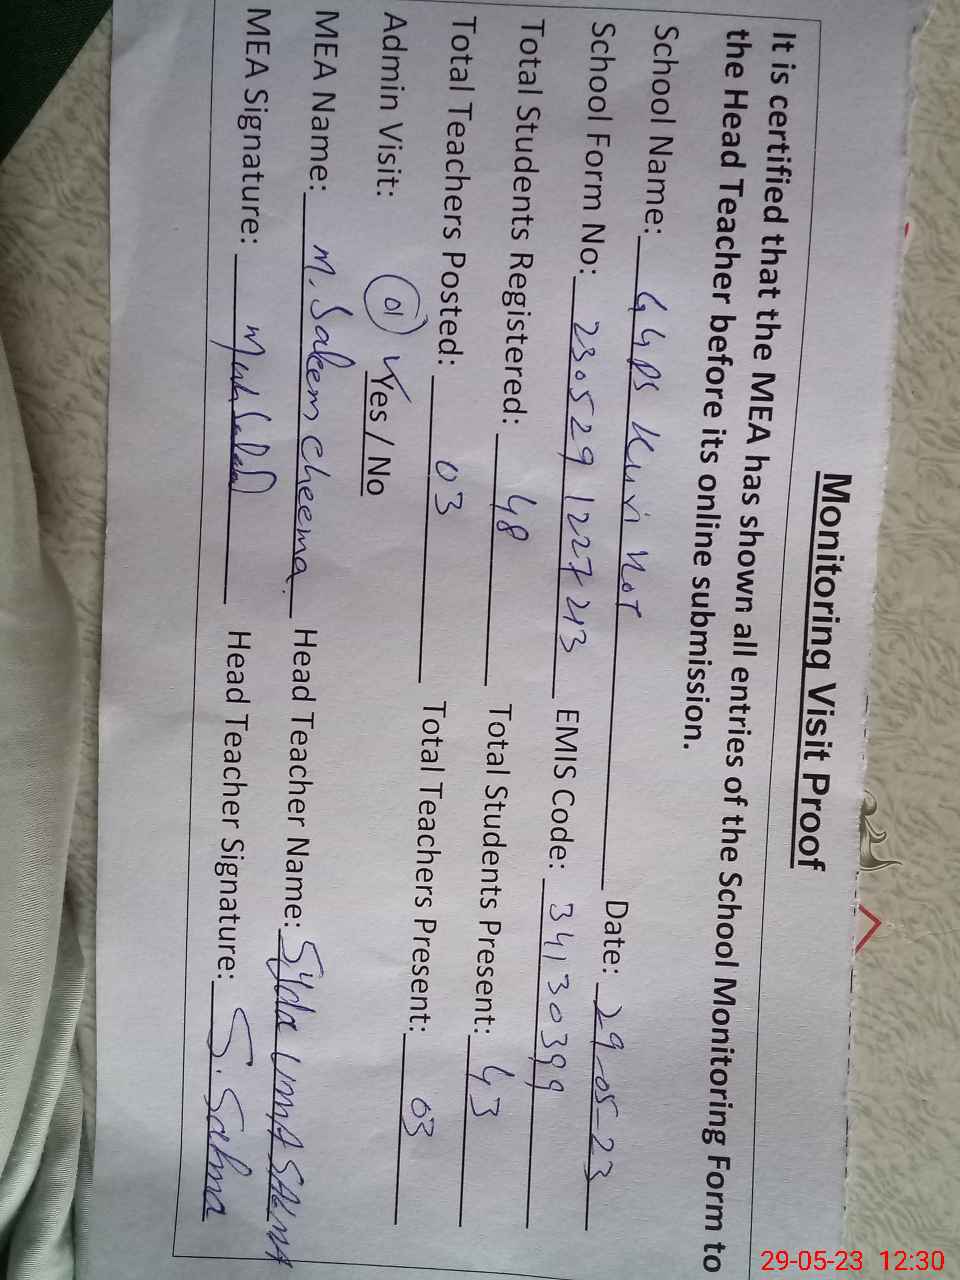 Monitoring Visit Proof
It is certified that the MEA has shown all entries of the School Monitoring Form to
the Head Teacher before its online submission.
School Name: GGPS Kuri Not Date: 29-05-23
School Form No: 230529 1227213 EMIS Code: 34130399
Total Students Registered: 48 Total Students Present: 43
Total Teachers Posted: 03 Total Teachers Present: 03
Admin Visit: 01 Yes / No
MEA Name: M. Saleem Cheema. Head Teacher Name: Syda Umma SALMA
MEA Signature: Head Teacher Signature: S. Salma
29-05-23 12:30